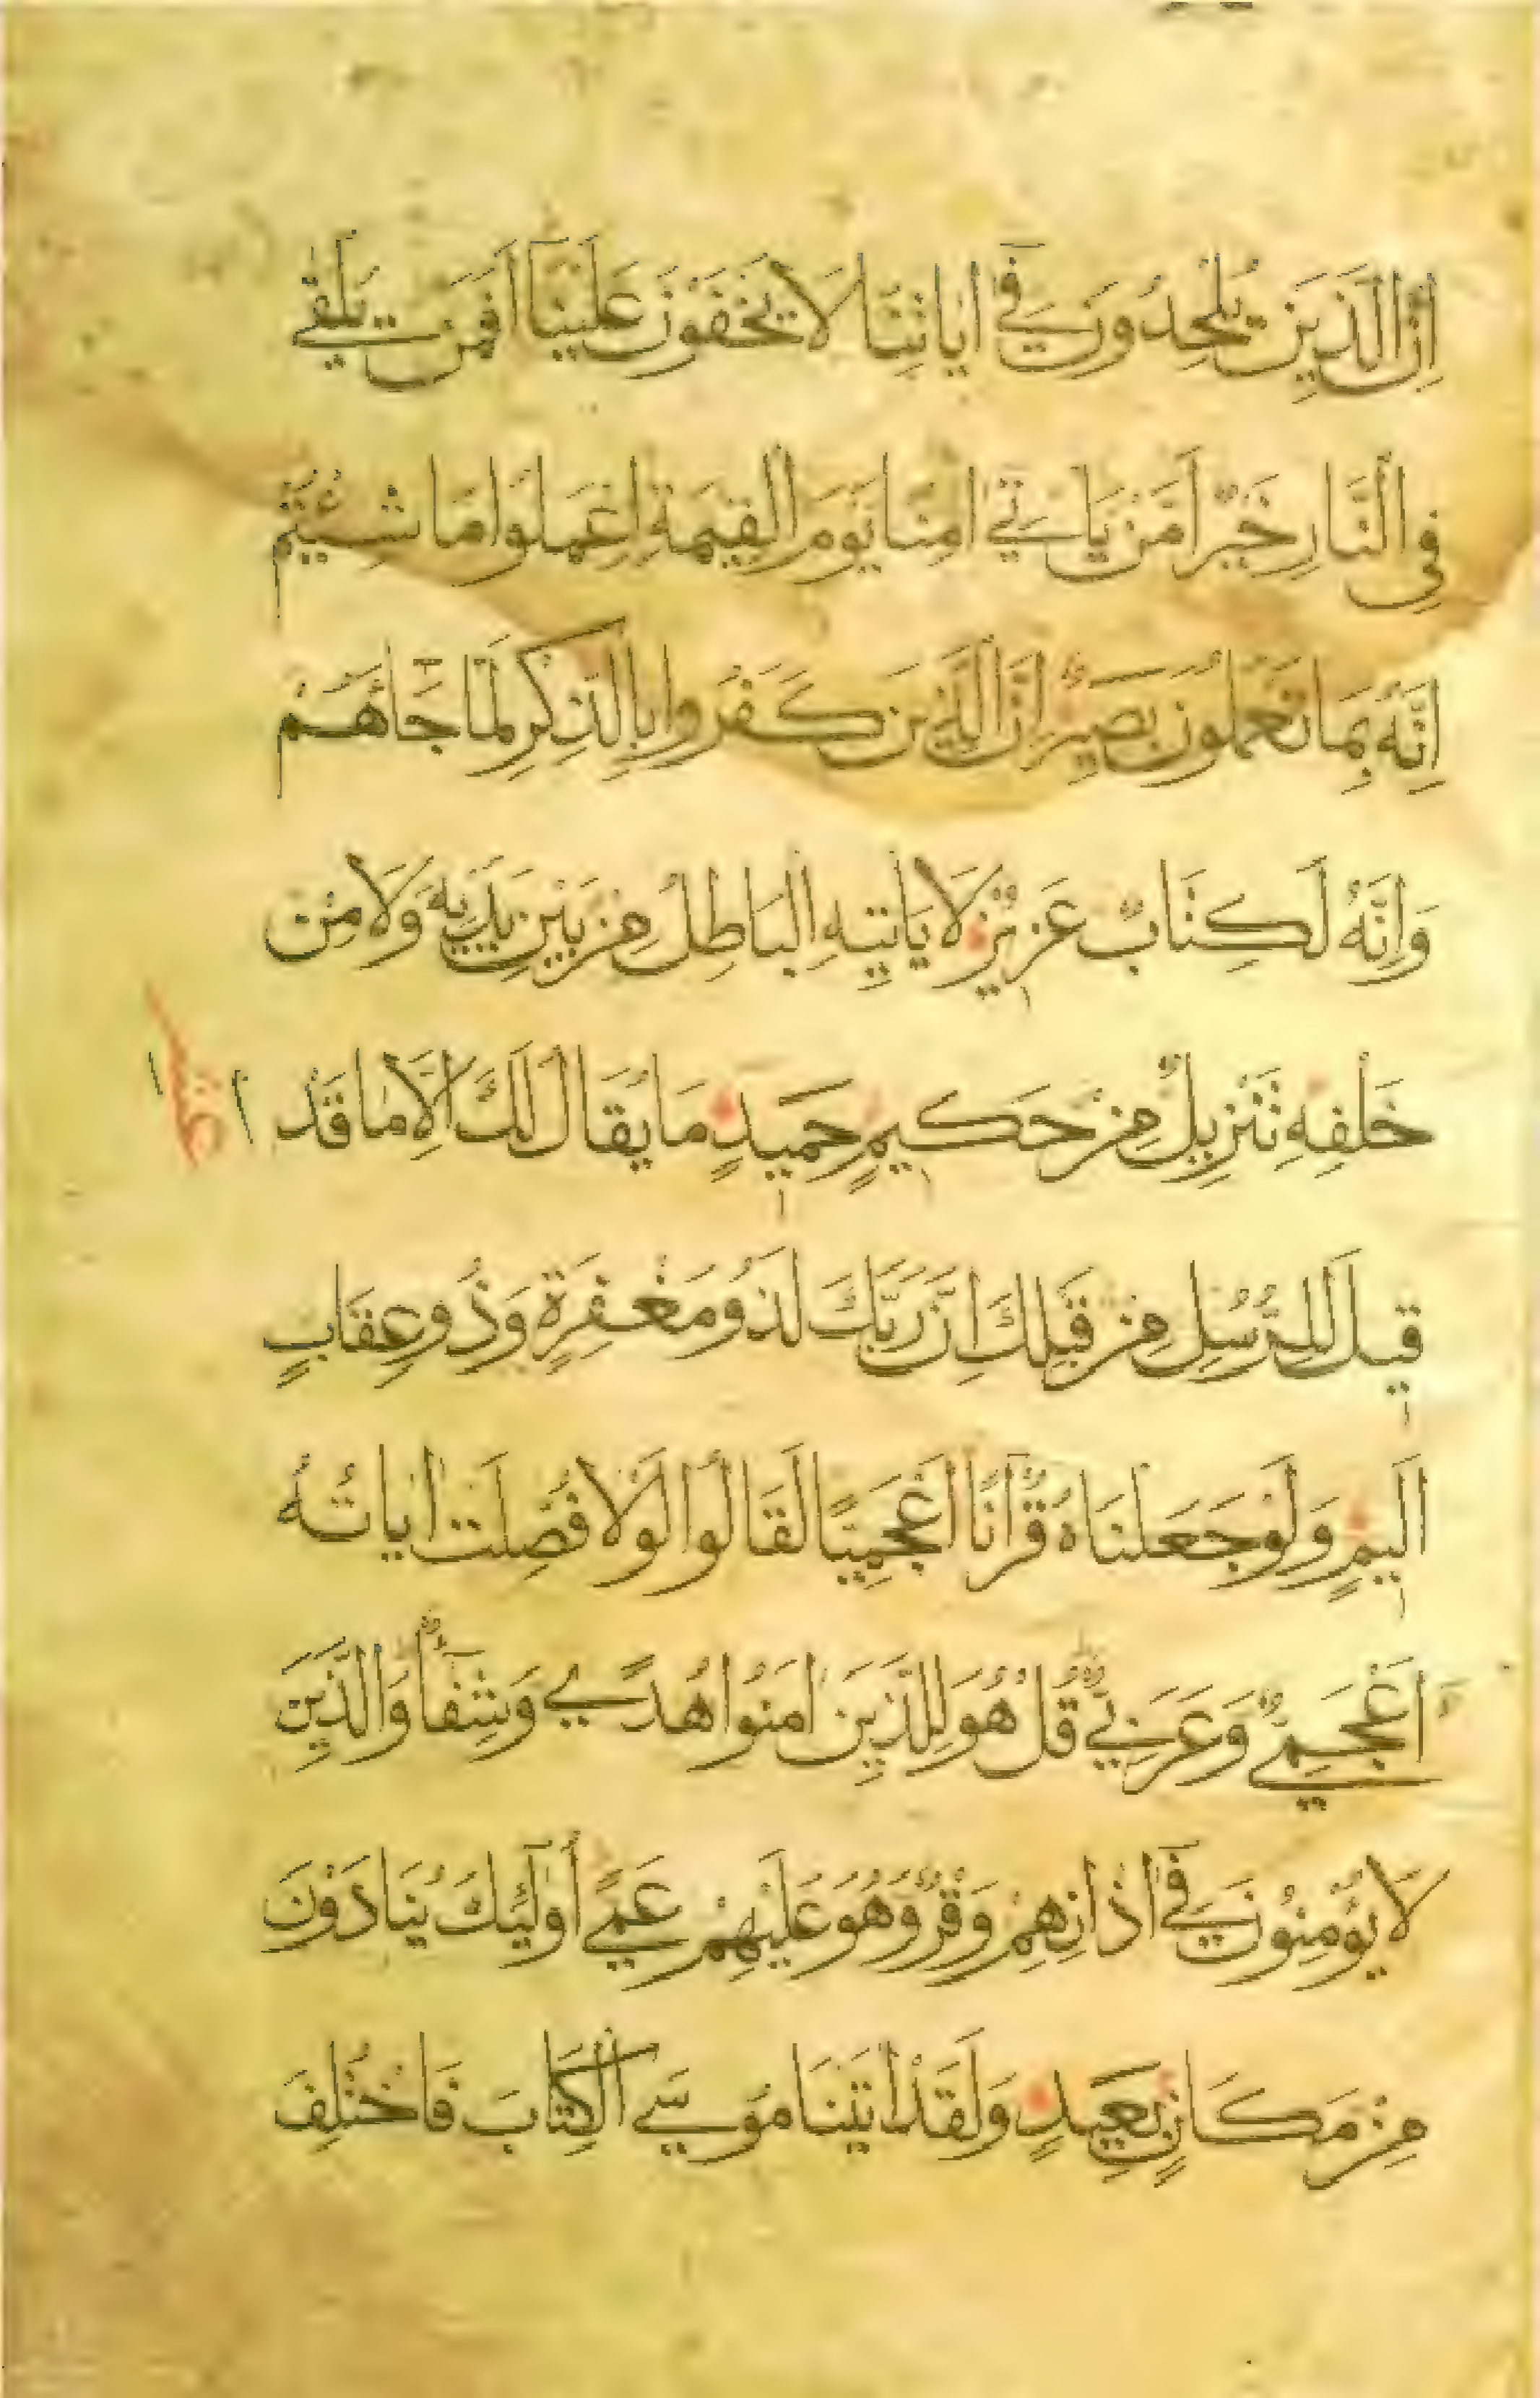 اِنَّ الَّذِينَ يُلْحِدُونَ فِي اٰيَاتِنَا لَا يَخْفَوْنَ عَلَيْنَا اَفَمَنْ يُلْقٰي
فِي النَّارِ خَيْرٌ اَمْ مَنْ يَاْتِي اٰمِنًا يَوْمَ الْقِيٰمَةِ اِعْمَلُوا مَا شِئْتُمْ
اِنَّهُ بِمَا تَعْمَلُونَ بَصِيرٌ اِنَّ الَّذِينَ كَفَرُوا بِالذِّكْرِ لَمَّا جَآءَهُمْ
وَاِنَّهُ لَكِتَابٌ عَزِيزٌ لَا يَاْتِيهِ الْبَاطِلُ مِنْ بَيْنِ يَدَيْهِ وَلَا مِنْ
خَلْفِهِ تَنْزِيلٌ مِنْ حَكِيمٍ حَمِيدٍ مَا يُقَالُ لَكَ اِلَّا مَا قَدْ
قِيلَ لِلرُّسُلِ مِنْ قَبْلِكَ اِنَّ رَبَّكَ لَذُو مَغْفِرَةٍ وَذُو عِقَابٍ
اَلِيمٍ وَلَوْ جَعَلْنَاهُ قُرْاٰنًا اَعْجَمِيًّا لَقَالُوا لَوْلَا فُصِّلَتْ اٰيَاتُهُ
ءَاَعْجَمِيٌّ وَعَرَبِيٌّ قُلْ هُوَ لِلَّذِينَ اٰمَنُوا هُدًي وَشِفَآءٌ وَالَّذِينَ
لَا يُؤْمِنُونَ فِي اٰذَانِهِمْ وَقْرٌ وَهُوَ عَلَيْهِمْ عَمًي اُولٰٓئِكَ يُنَادَوْنَ
مِنْ مَكَانٍ بَعِيدٍ وَلَقَدْ اٰتَيْنَا مُوسَي الْكِتَابَ فَاخْتُلِفَ